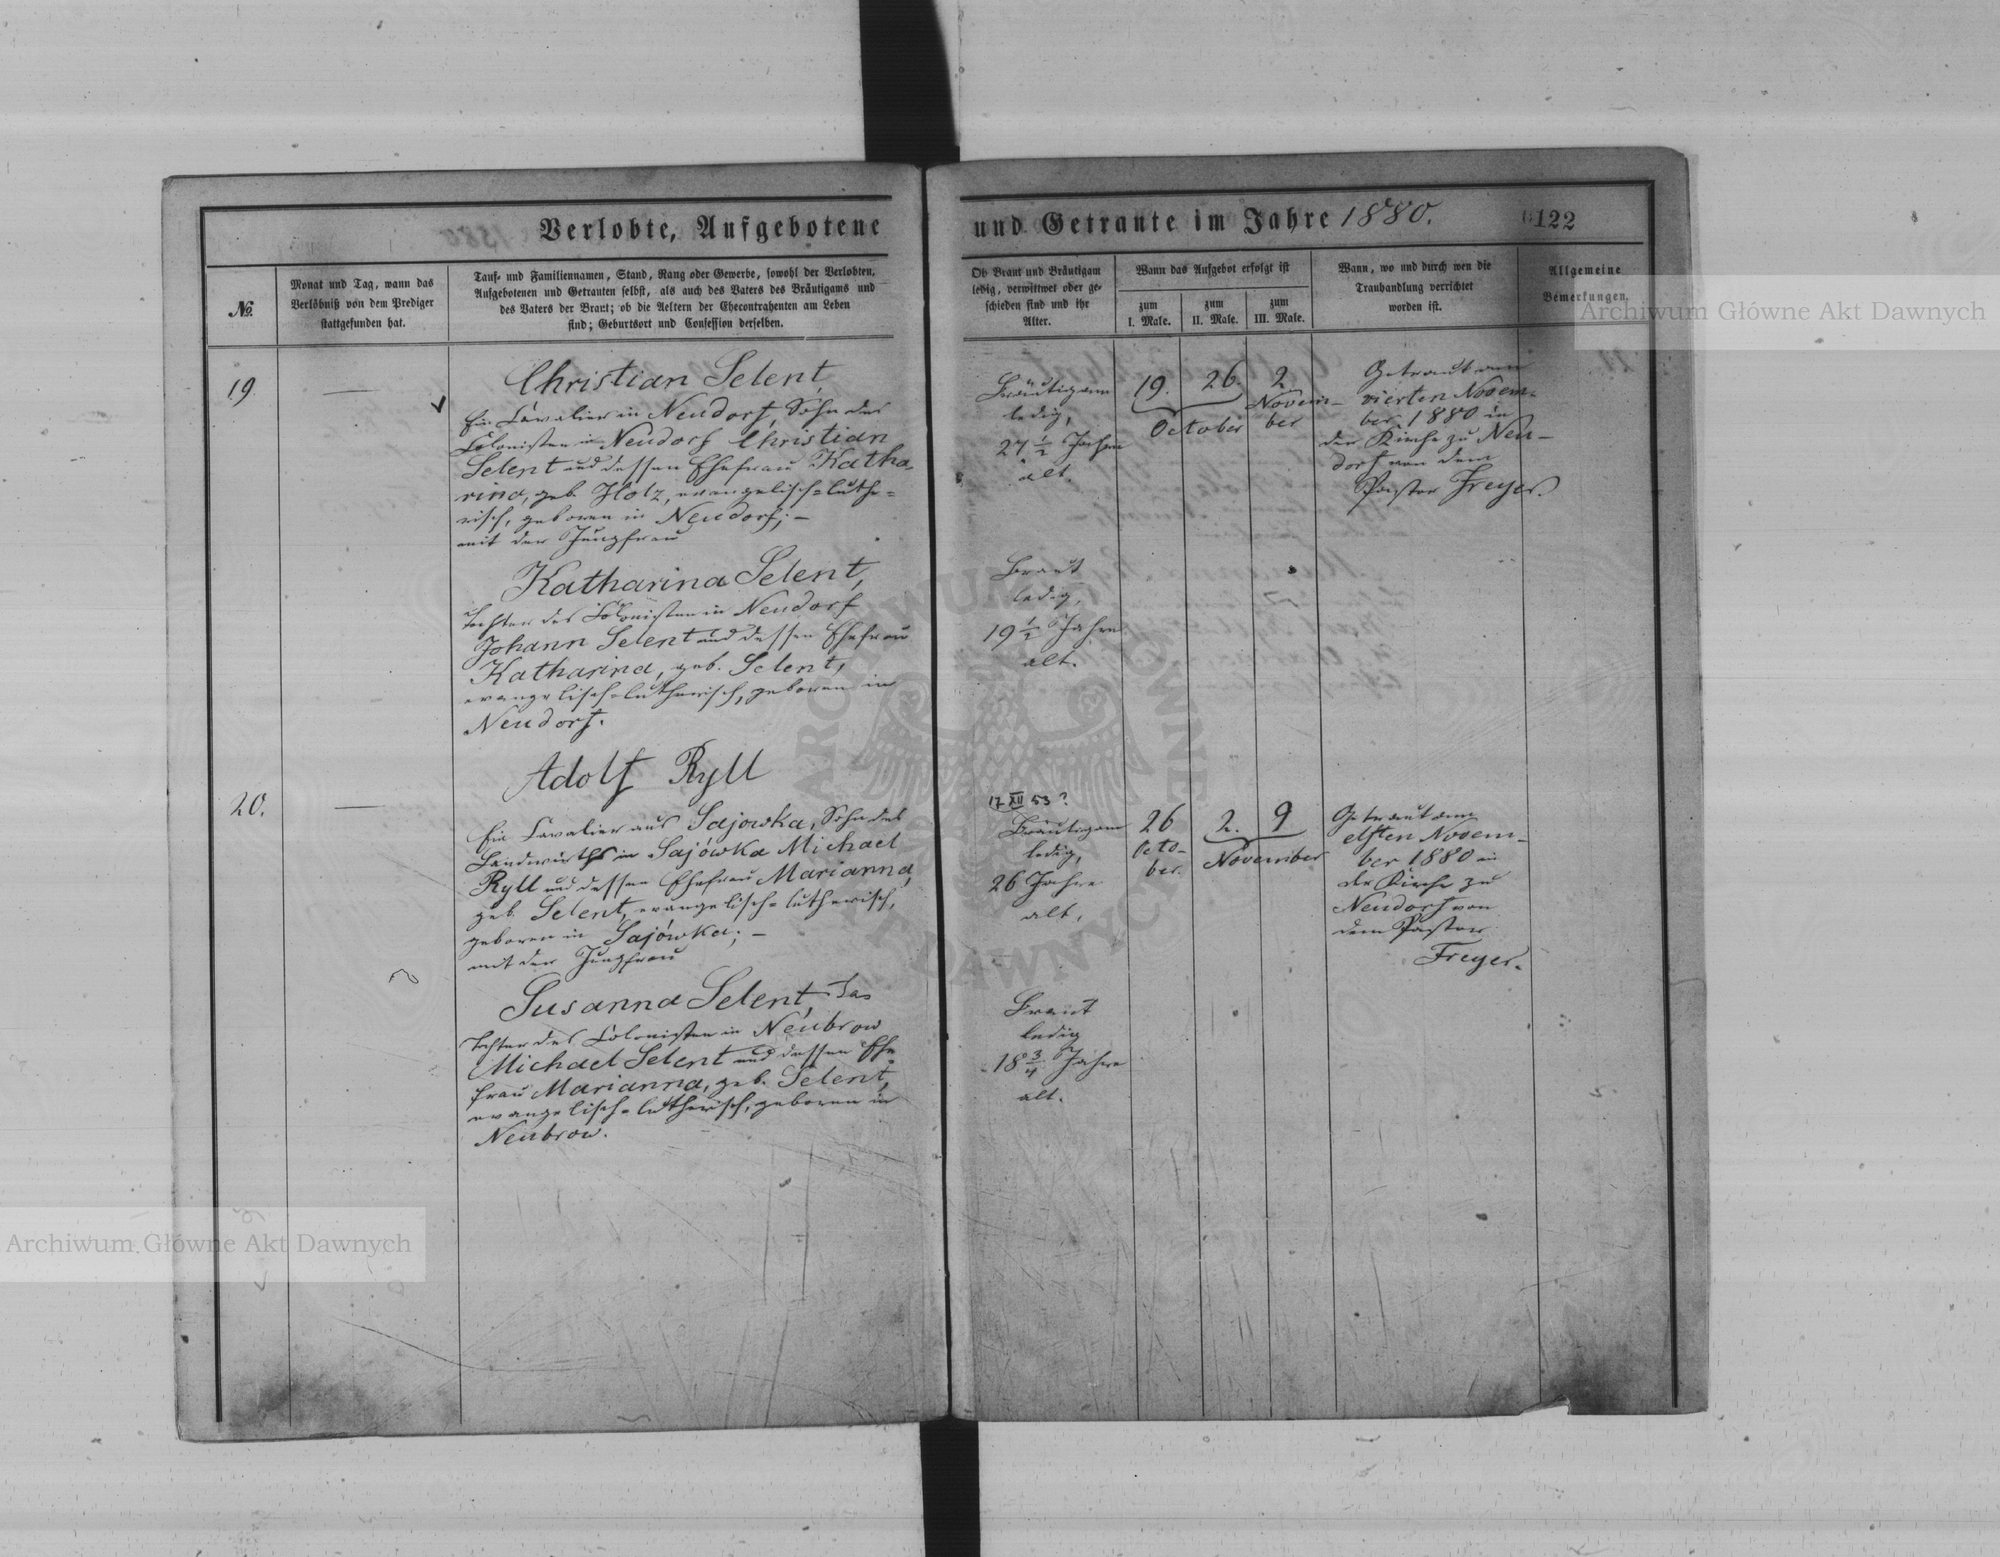 Verlobte, Aufgebotene und Getraute im Jahre 1880. 122
№.
Monat und Tag, wann das
Verlöbniß von dem Prediger
stattgefunden hat.
Tauf- und Familiennamen, Stand, Rang oder Gewerbe, sowohl der Verlobten,
Aufgebotenen und Getrauten selbst, als auch des Vaters des Bräutigams und
des Vaters der Braut; ob die Aeltern der Ehecontrahenten am Leben
sind; Geburtsort und Confession derselben.
Ob Braut und Bräutigam
ledig, verwittwet oder ge-
schieden sind und ihr
Alter.
Wann das Aufgebot erfolgt ist
zum
I. Male.
zum
II. Male.
zum
III. Male.
Wann, wo und durch wen die
Trauhandlung verrichtet
worden ist.
Allgemeine
Bemerkungen.
19
Christian Selent,
Ein Cavalier in Neudorf, Sohn des
Colonisten in Neudorf Christian
Selent und dessen Ehefrau Katha-
rina, geb. Holz, evangelisch=luthe=
risch, geboren in Neudorf; –
mit der Jungfrau
Katharina Selent,
Tochter des Colonisten in Neudorf
Johann Selent und dessen Ehefrau
Katharina, geb. Selent,
evangelisch=lutherisch, geboren in
Neudorf.
Bräutigam
ledig,
27 1/2 Jahre
alt.
Braut
ledig,
19 1/2 Jahre
alt.
19. 26. 2
October
Novem-
ber
Getraut am
vierten Novem-
ber 1880 in
der Kirche zu Neu-
dorf von dem
Pastor Freyer.
20.
Adolf Ryll
Ein Cavalier aus Sajowka, Sohn des
Landwirths in Sajówka Michael
Ryll und dessen Ehefrau Marianna,
geb. Selent, evangelisch=lutherisch,
geboren in Sajówka; –
mit der Jungfrau
Susanna Selent,
Tochter des Colonisten in Neubrow
Michael Selent und dessen Ehe
frau Marianna, geb. Selent,
evangelisch=lutherisch, geboren in
Neubrow.
17 XII 53?
Bräutigam
ledig,
26 Jahre
alt,
Braut
ledig
18 3/4 Jahre
alt.
26
Octo-
ber.
2. 9
November
Getraut am
elften Novem-
ber 1880 in
der Kirche zu
Neudorf von
dem Pastor
Freyer.
Archiwum Główne Akt Dawnych
Archiwum Główne Akt Dawnych
ARCHIWUM GŁÓWNE AKT DAWNYCH